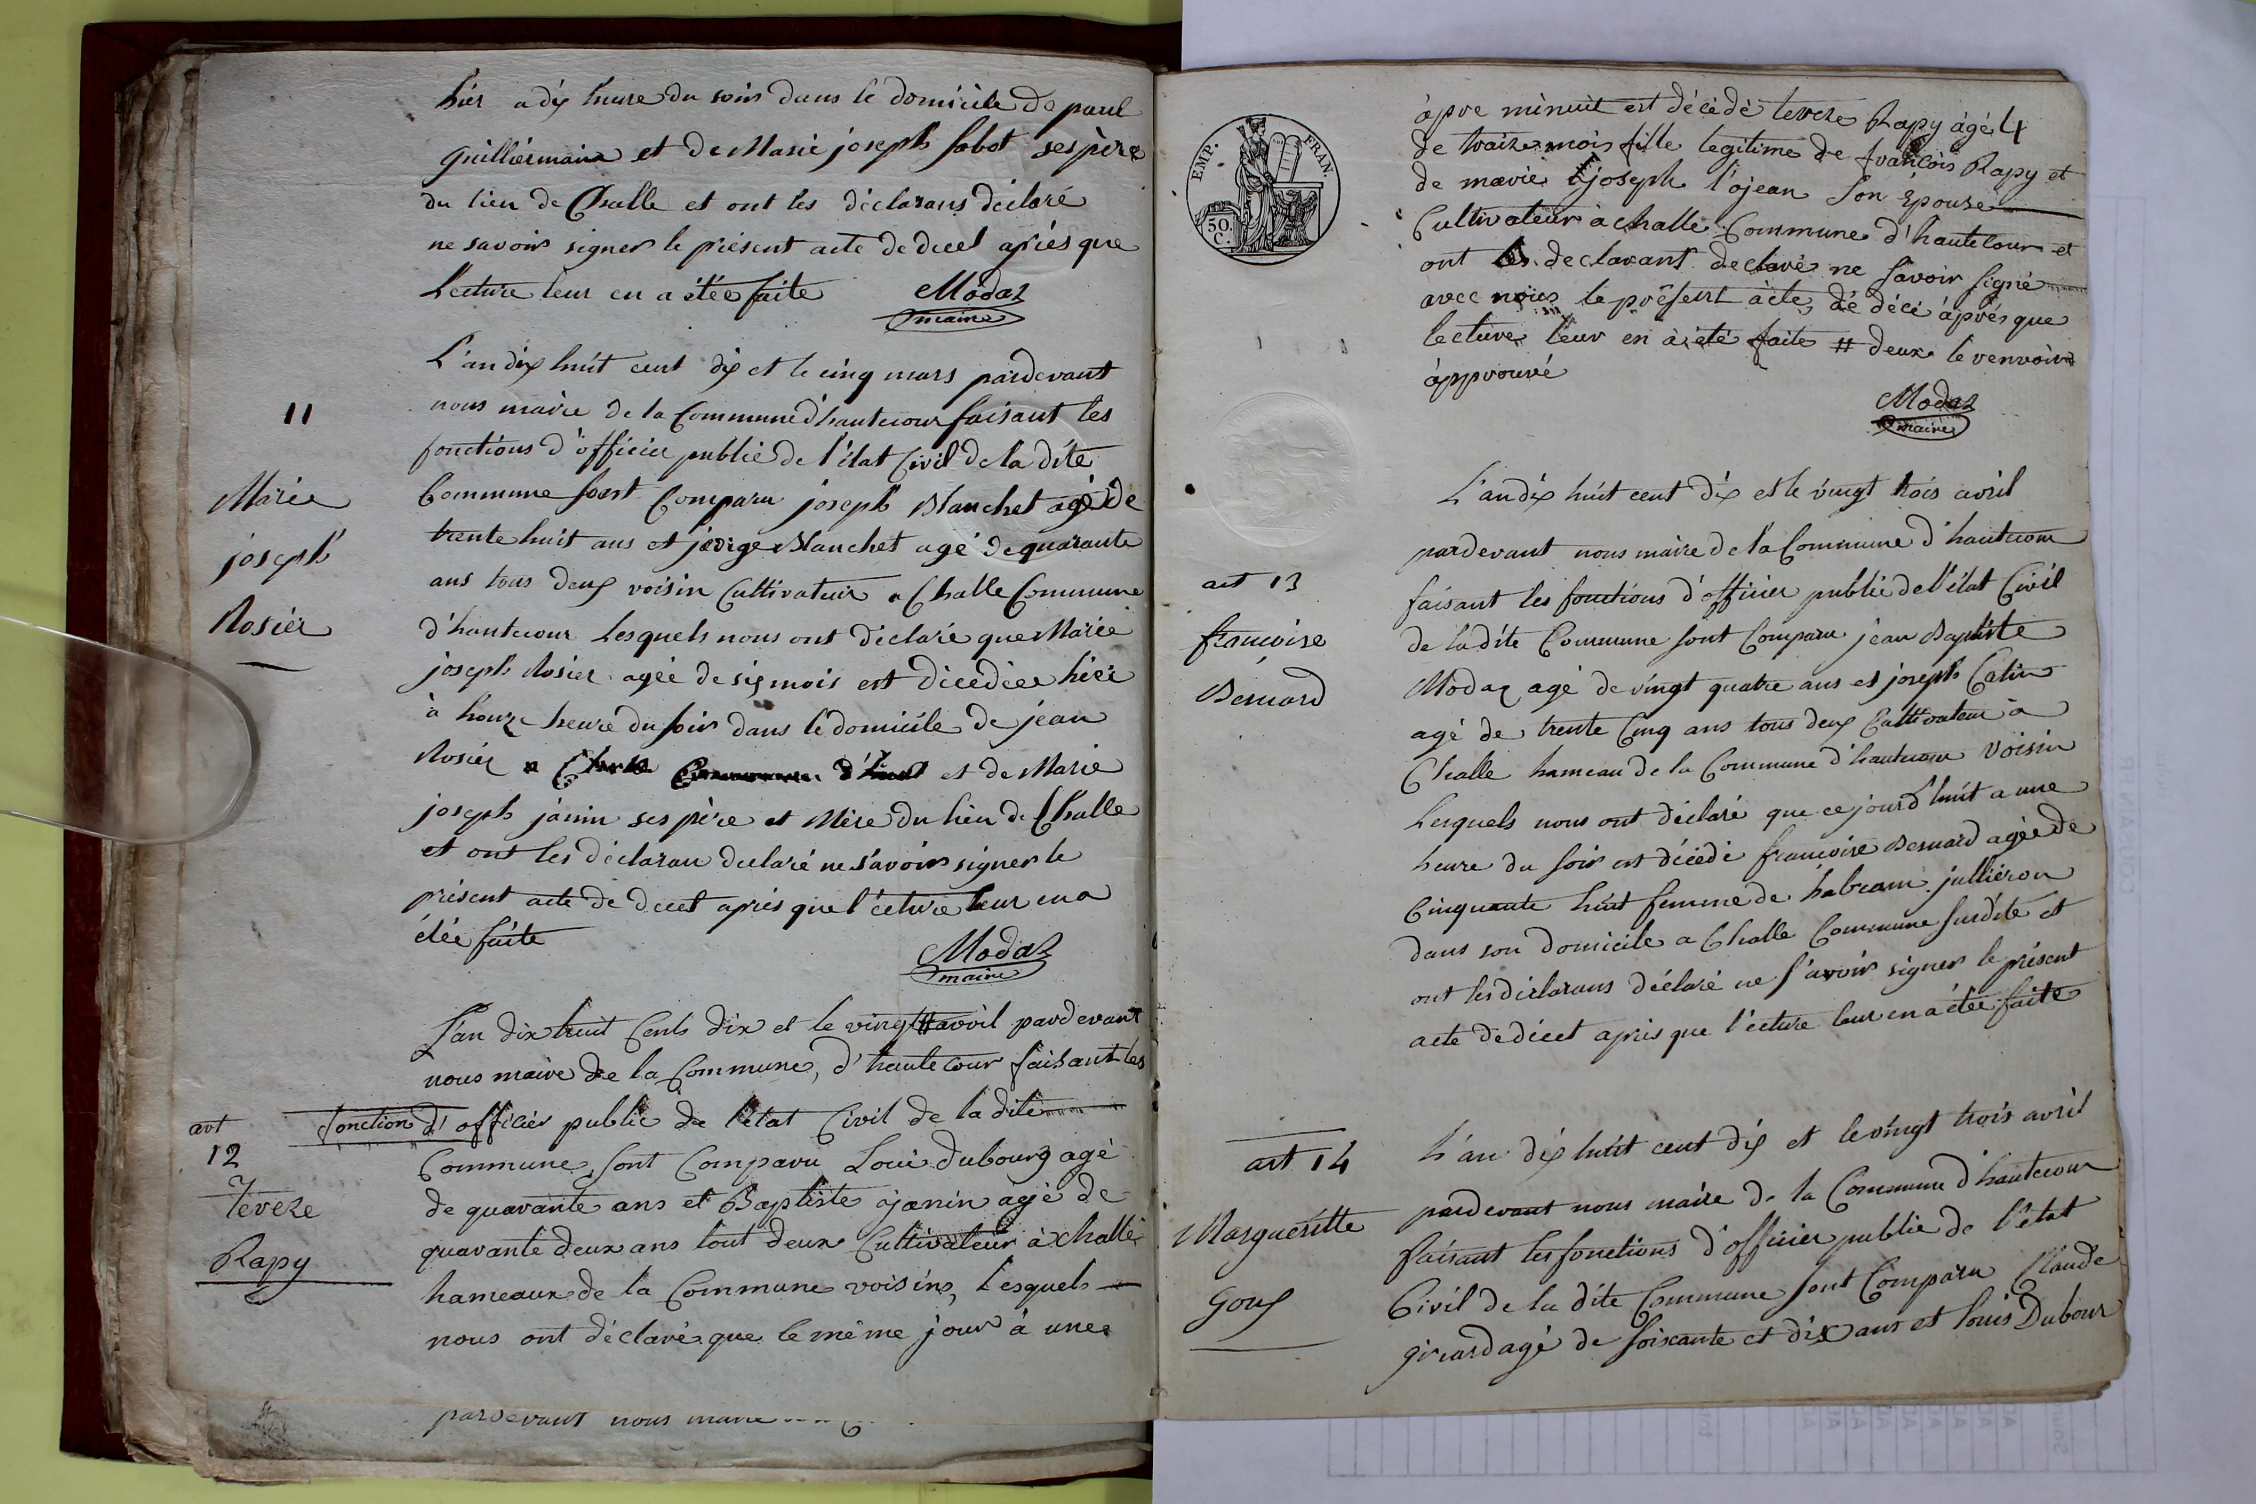 hier a dix heure du soir dans le domicile de paul
guilliermain et de Marie joseph sabot ses père
du lieu de Challe et ont les déclarans déclaré
ne savoir signer le présent acte de decet apriès que
lecture leur en a étée faite Modaz
maire
11
Marie
joseph
Rosier
L'an dix huit cent dix et le cinq mars pardevant
nous maire de la Commune d'hautecour faisant les
fonctions d'officier public de l'état Civil de la dite
Commune sont Comparu joseph Blanchet agé de
trente huit ans et jeorge Blanchet agé de quarante
ans tous deux voisin Cultivateur a Challe Commune
d'hautecour lesquels nous ont déclaré que Marie
joseph Rosier agée de six mois est décédée hier
à honze heure du soir dans le domicile de jean
Rosier et de Marie
joseph janin ses père et Mère du lieu de Challe
et ont les déclaran declaré ne savoir signer le
présent acte de decet aprés que l'ecture leur en a
étée faite
Modaz
maire
art
12
Tereze
Rapy
L'an dix huit Cents dix et le vingt # avril pardevant
nous maire de la Commune, d'hautecour faisant les
fonction d'officier public de l'état Civil de la dite
Commune, sont Comparu Loui dubourg agé
de quarante ans et Baptiste ojanin agé de
quarante deux ans tout deux Cultivateur à challe
hameaux de la Commune voisins, Lesquels
nous ont déclaré que le même jour à une
pardevant nous maire
EMP. FRAN.
50.
C.
àpre minuit est décédé tereze Rapy àgé 4
de traize mois fille legitime de francois Rapy et
de marie joseph l'ojean son Epouse
Cultivateur à challe Commune d'hautecour et
ont les declarant declaré ne savoir signé
avec nous le présent àcte, de décé àprés que
lecture leur en à été faite # deux le renvoir
àpprouvé
Modaz
maire
art 13
francoise
Bernard
L'an dix huit cent dix et le vingt trois avril
pardevant nous maire de la Commune d'hautecour
faisant les fonctions d'officier public de l'état Civil
de la dite Commune sont Comparu jean Baptiste
Modaz agé de vingt quatre ans et joseph Colin
agé de trente Cinq ans tous deux Cultivateur a
Challe hameau de la Commune d'hautecour voisin
Lesquels nous ont déclaré que ce jourd'huit a une
heure du soir est décédé francoise Bernard agée de
Cinquante huit femme de habram jullieron
dans son domicile a Challe Commune susdite et
ont les déclarans déclaré ne s'avoir signer le présent
acte de décet apris que l'ecture leur en a étée faite
art 14
Margueritte
Goux
L'an dix huit cent dix et le vingt trois avril
pardevant nous maire de la Commune d'hautecour
faisant les fonctions d'officier public de l'état
Civil de la dite Commune sont Comparu Claude
girard agé de soixante et dix ans et louis Dubour